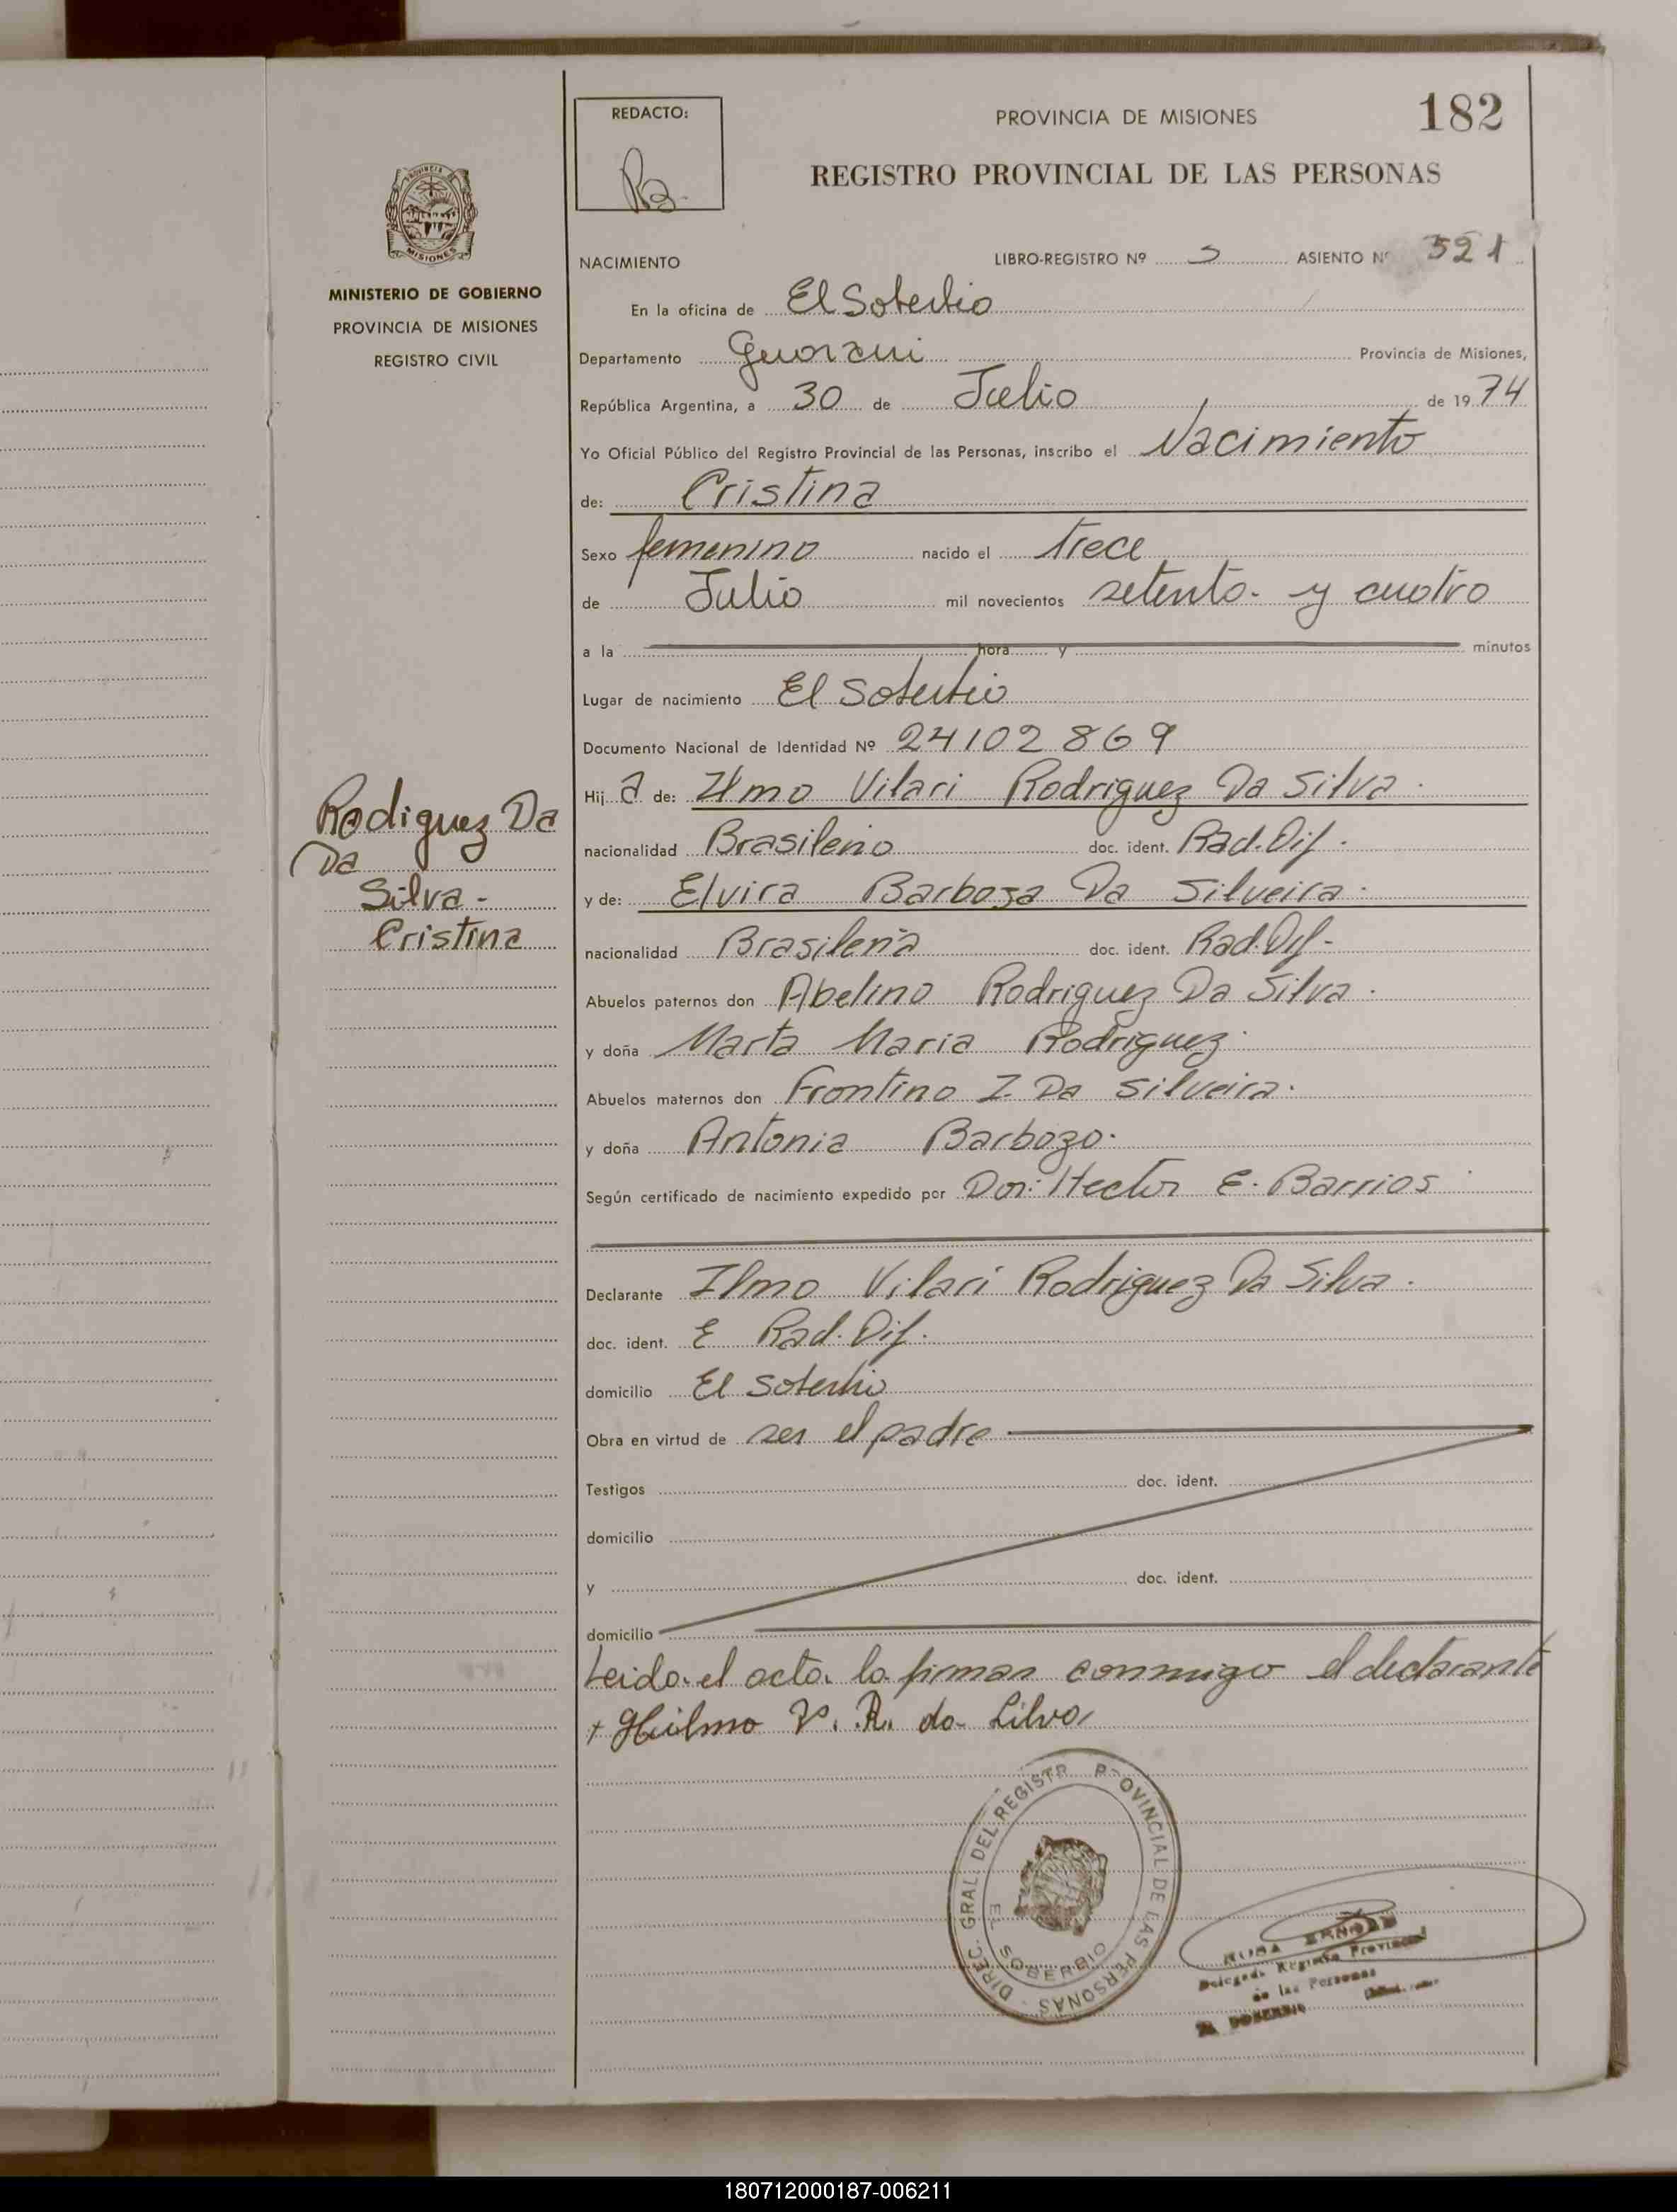 182
REDACTO:
PROVINCIA DE MISIONES
REGISTRO PROVINCIAL DE LAS PERSONAS
MISIONES
MINISTERIO DE GOBIERNO
PROVINCIA DE MISIONES
REGISTRO CIVIL
NACIMIENTO LIBRO-REGISTRO Nº ASIENTO Nº 521
En la oficina de El Soberbio
Departamento Guarani Provincia de Misiones,
República Argentina, a 30 de Julio de 1974
Yo Oficial Público del Registro Provincial de las Personas, inscribo el Nacimiento
de: Cristina
Sexo femenino nacido el trece
de Julio mil novecientos setenta y cuatro
a la hora y minutos
Lugar de nacimiento El Soberbio
Documento Nacional de Identidad Nº 24102869
Hija de: Ilmo Vilari Rodriguez Da Silva.
nacionalidad Brasileño doc. ident. Rad. Dif.
y de: Elvira Barboza Da Silveira.
nacionalidad Brasileña doc. ident. Rad. Dif-
Abuelos paternos don Abelino Rodriguez Da Silva.
y doña Marta Maria Rodriguez.
Abuelos maternos don Frontino I. Da Silveira.
y doña Antonia Barbozo.
Según certificado de nacimiento expedido por Hector E. Barrios
Rodiguez Da
Da
Silva-
Cristina
Declarante Ilmo Vilari Rodriguez Da Silva.
doc. ident. E Rad. Dif.
domicilio El Soberbio
Obra en virtud de ser el padre
Testigos doc. ident.
domicilio
y doc. ident.
domicilio
Leida el acta la firman conmigo el declarante
+ Hilmo V. R. da Silva
DIREC. GRAL. DEL REGISTR PROVINCIAL DE LAS PERSONAS
EL SOBERBIO
Registro Provincial
de las Personas
EL SOBERBIO
180712000187-006211